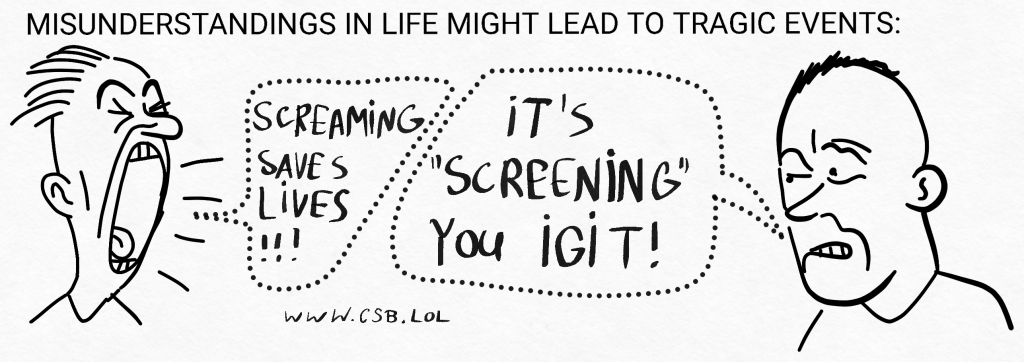 MISUNDERSTANDINGS IN LIFE MIGHT LEAD TO TRAGIC EVENTS:
SCREAMING
SAVES
LIVES
!!!
IT'S
"SCREENING"
YOU IGIT!
WWW.CSB.LOL